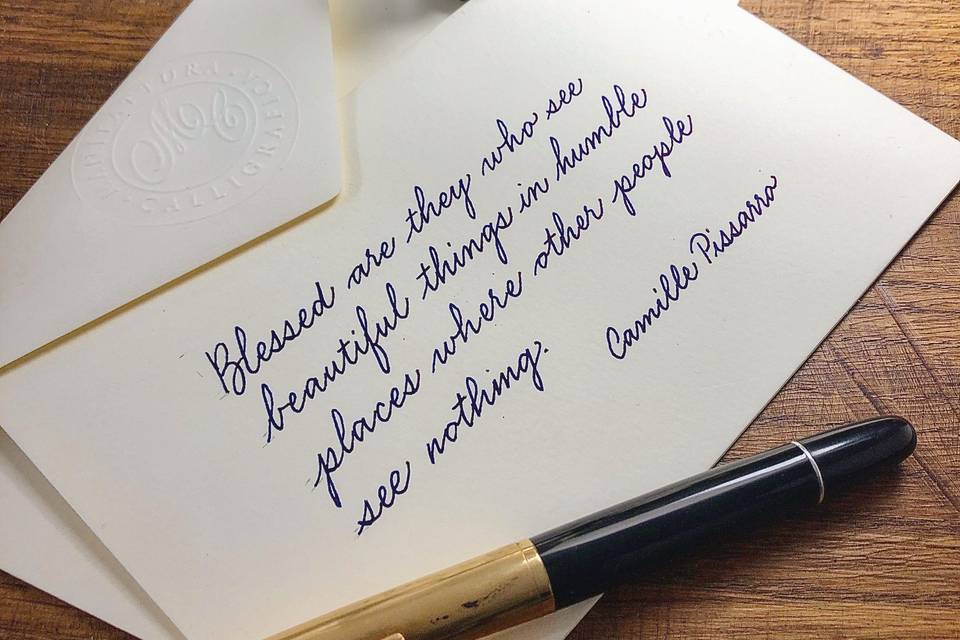 Blessed are they who see
beautiful things in humble
places where other people
see nothing.
Camille Pissarro
CALLIGRAPHY